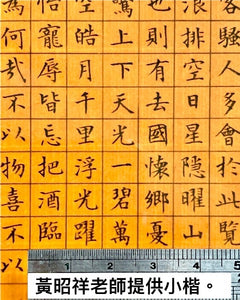 騷人多會於此覽
浪排空日星隱曜山
也則有去國懷鄉憂
上下天光一碧萬
空皓月千里浮光躍
寵辱皆忘把酒臨
為何哉不以物喜不以
1 2 3 4 5
黃昭祥老師提供小楷。